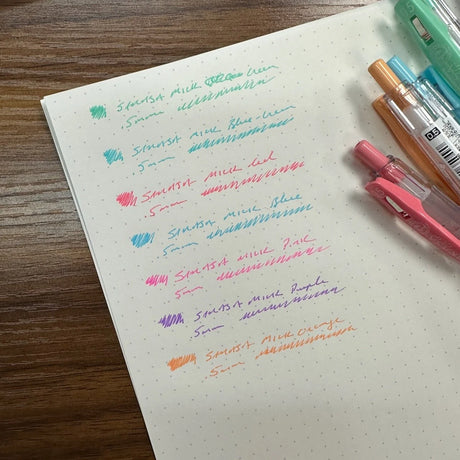 SARASA MILK Green
.5mm
SARASA MILK Blue-Green
.5mm
SARASA MILK Red
.5mm
SARASA MILK Blue
.5mm
SARASA MILK Pink
.5mm
SARASA MILK Purple
.5mm
SARASA MILK Orange
.5mm
0.5